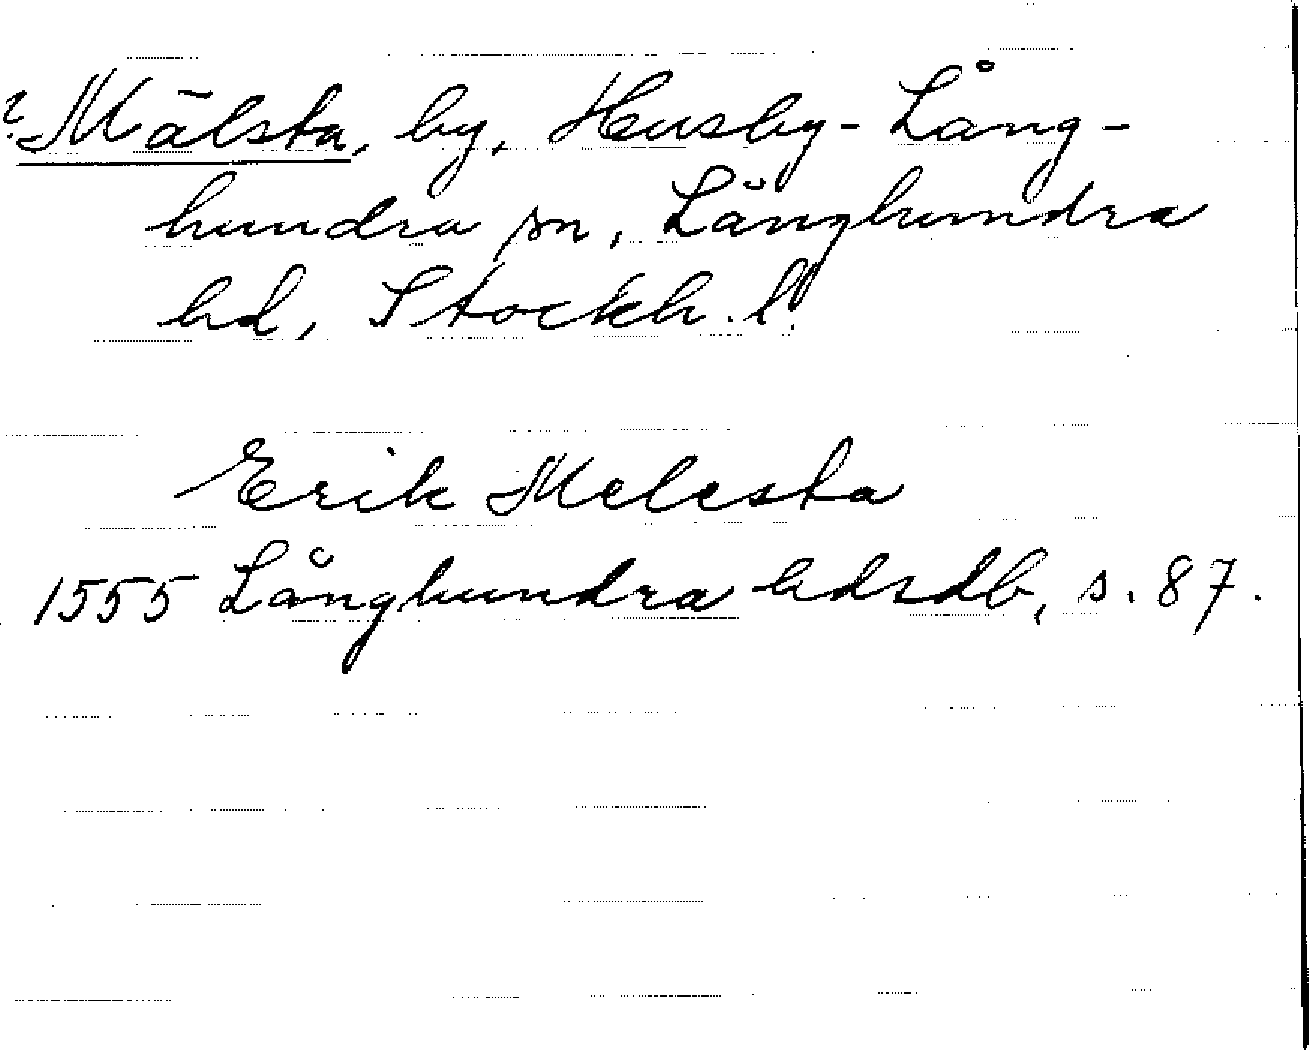 ? Mälsta, by, Husby-Lång-
hundra sn, Långhundra
hd, Stockh. l.
Erik Melesta
1555 Långhundra hdrdb, s. 87.